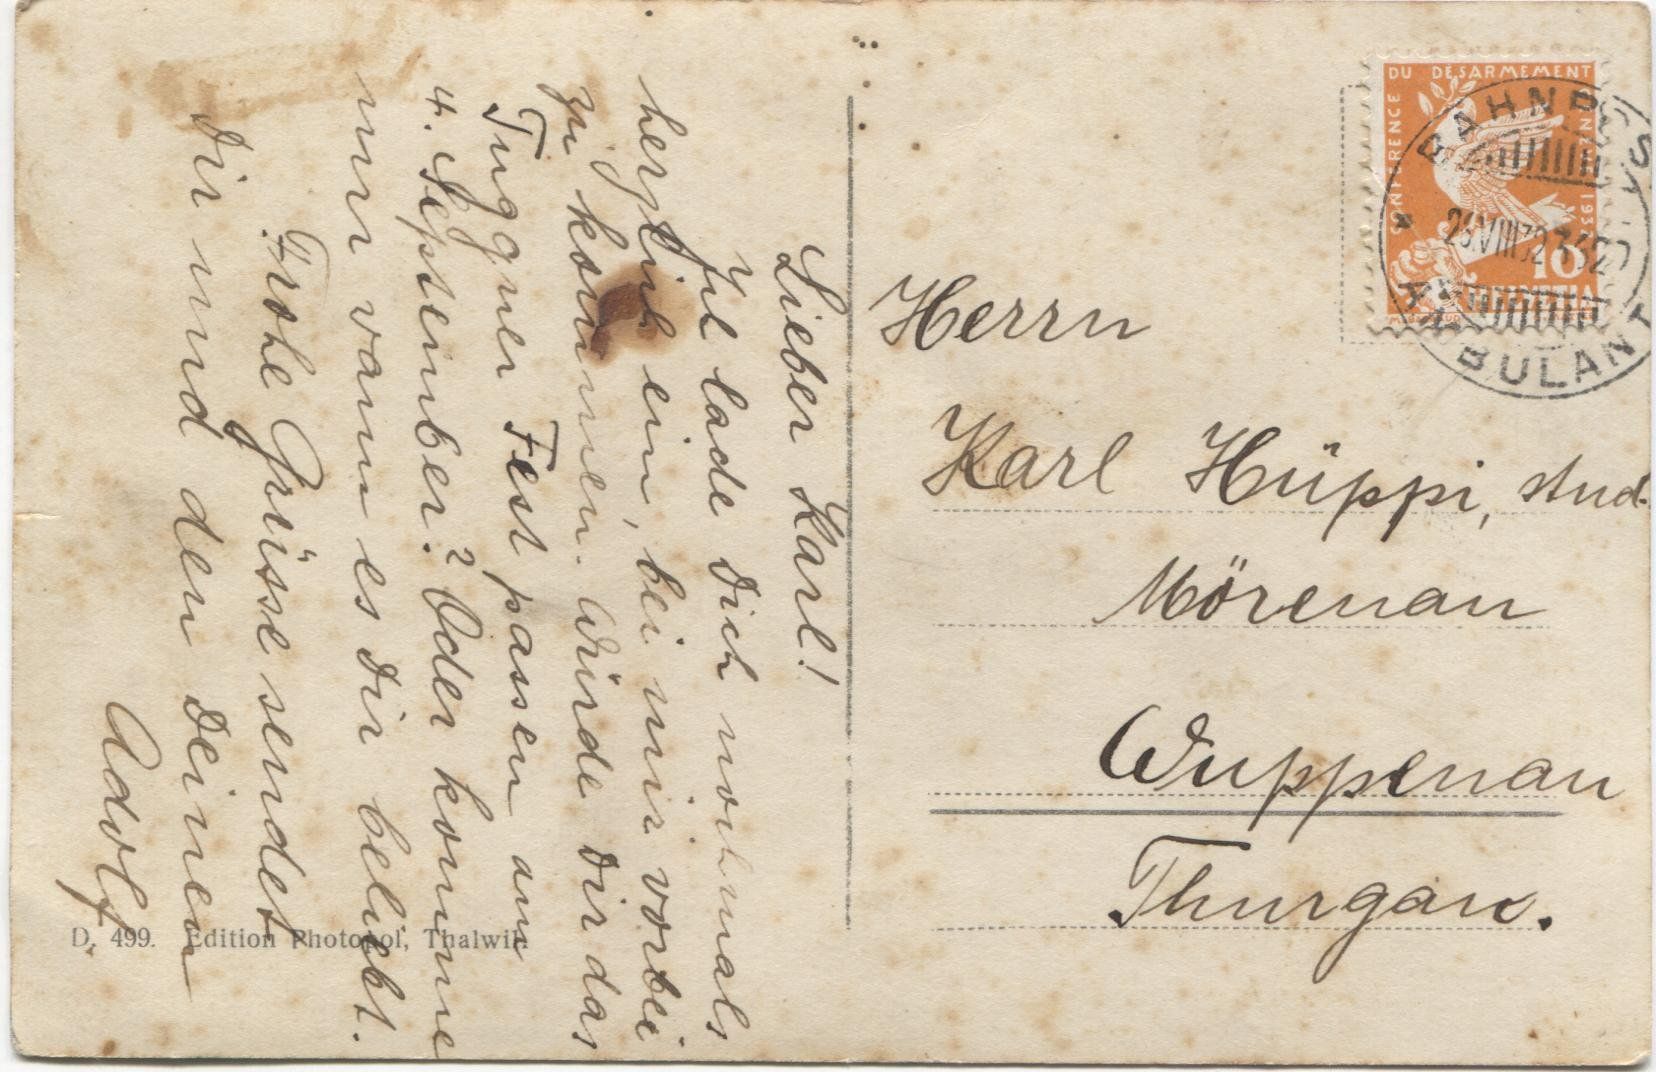 Lieber Karl!
Ich lade Dich nochmals
herzlich ein, bei mir vorbei
zu kommen. Würde Dir das
Tuggner Fest passen am
4. September? Oder komme
nur wann es Dir beliebt.
Frohe Grüsse sendet
Dir und den Deinen
Adolf
D. 499. Edition Photopol, Thalwil.
CONFERENCE DU DESARMEMENT
GENEVE 1932
10
HELVETIA
BAHNPOST
26.VIII 32
AMBULANT
Herrn
Karl Hüppi, stud.
Mörenau
Wuppenau
Thurgau.